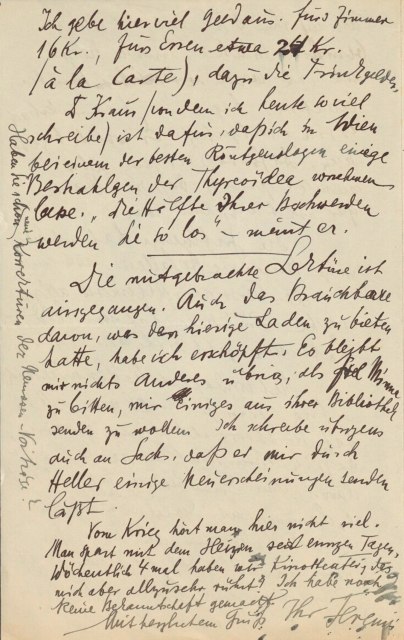 Ich gebe hier viel Geld aus. Fürs Zimmer
16 Kr., fürs Essen etwa 24 Kr.
(à la Carte), dazu die Trinkgelder.
D Kraus (von dem ich heute so viel
schreibe) ist dafür, daß ich in Wien
bei einem der besten Röntgenologen einige
Bestrahlgen der Thyreoidea vornehmen
lasse. „Die Hälfte Ihrer Beschwerden
werden Sie so los“ – meint er.
Die mitgebrachte Lektüre ist
ausgegangen. Auch das Brauchbare
davon, was der hiesige Laden zu bieten
hatte, habe ich erschöpft. Es bleibt
mir nichts Anderes übrig, als Minna
zu bitten, mir Einiges aus ihrer Bibliothek
senden zu wollen. Ich schreibe übrigens
auch an Sachs, daß er mir durch
Heller einige Neuerscheinungen senden
läßt.
Vom Krieg hört man hier nicht viel.
Man spart mit dem Heizen seit einigen Tagen.
Wöchentlich 4 mal haben wir Kinotheater, das
mich aber allzusehr rührt! Ich habe noch
keine Bekanntschaft gemacht.
Mit herzlichem Gruß Ihr Ferenczi
Haben Sie schon neue Korrekturen der Neurosen-Vorträge?